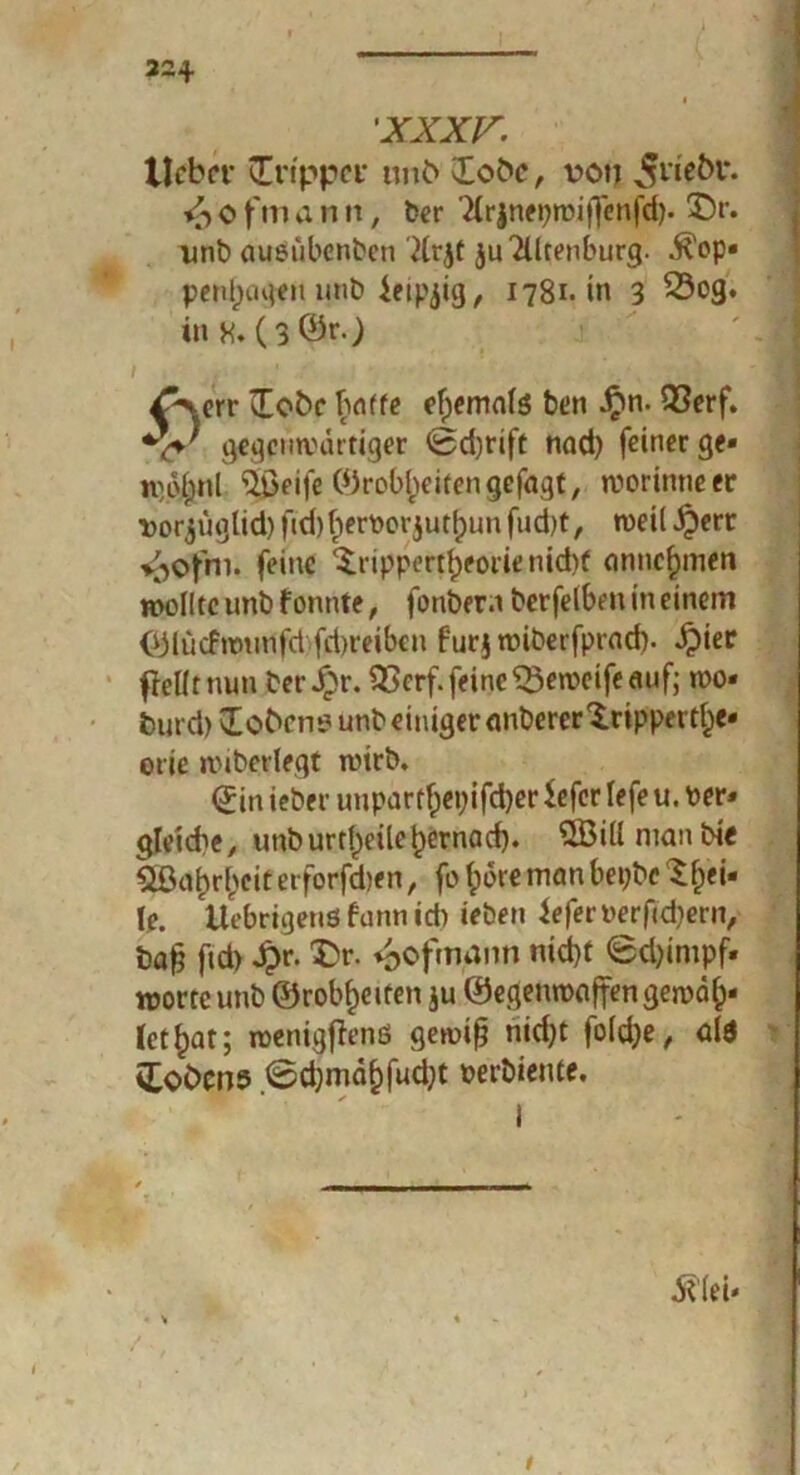 224
XXXV.
Ueber Tripper und Tode, von Friedr.
Hofmann, der Arzneywissensch. Dr.
und ausübenden Arzt zu Altenburg. Kop-
penhagen und Leipzig, 1781. in 3 Bog.
in 8. (3 Gr.)
Herr Tode hatte ehemals den Hn. Verf.
gegenwärtiger Schrift nach seiner ge-
wöhnl Weise Grobheiten gesagt, worinne er
vorzüglich sich hervorzuthun sucht, weil Herr
Hofm. seine Trippertheorie nicht annehmen
wollte und konnte, sondern derselben in einem
Glückwunschschreiben kurz widersprach. Hier
stellt nun der Hr. Verf. seine Beweise auf; wo-
durch Todens und einiger anderer Tripperthe-
orie widerlegt wird.
Ein ieder unpartheyischer Leser lese u. ver-
gleiche, und urtheile hernach. Will man die
Wahrheit erforschen, so höre man beyde Thei-
le. Uebrigens kann ich ieden Leser versichern,
daß sich Hr. Dr. Hofmann nicht Schimpf-
worte und Grobheiten zu Gegenwaffen gewäh-
let hat; wenigstens gewiß nicht solche, als
Todens Schmähsucht verdiente.
Klei-